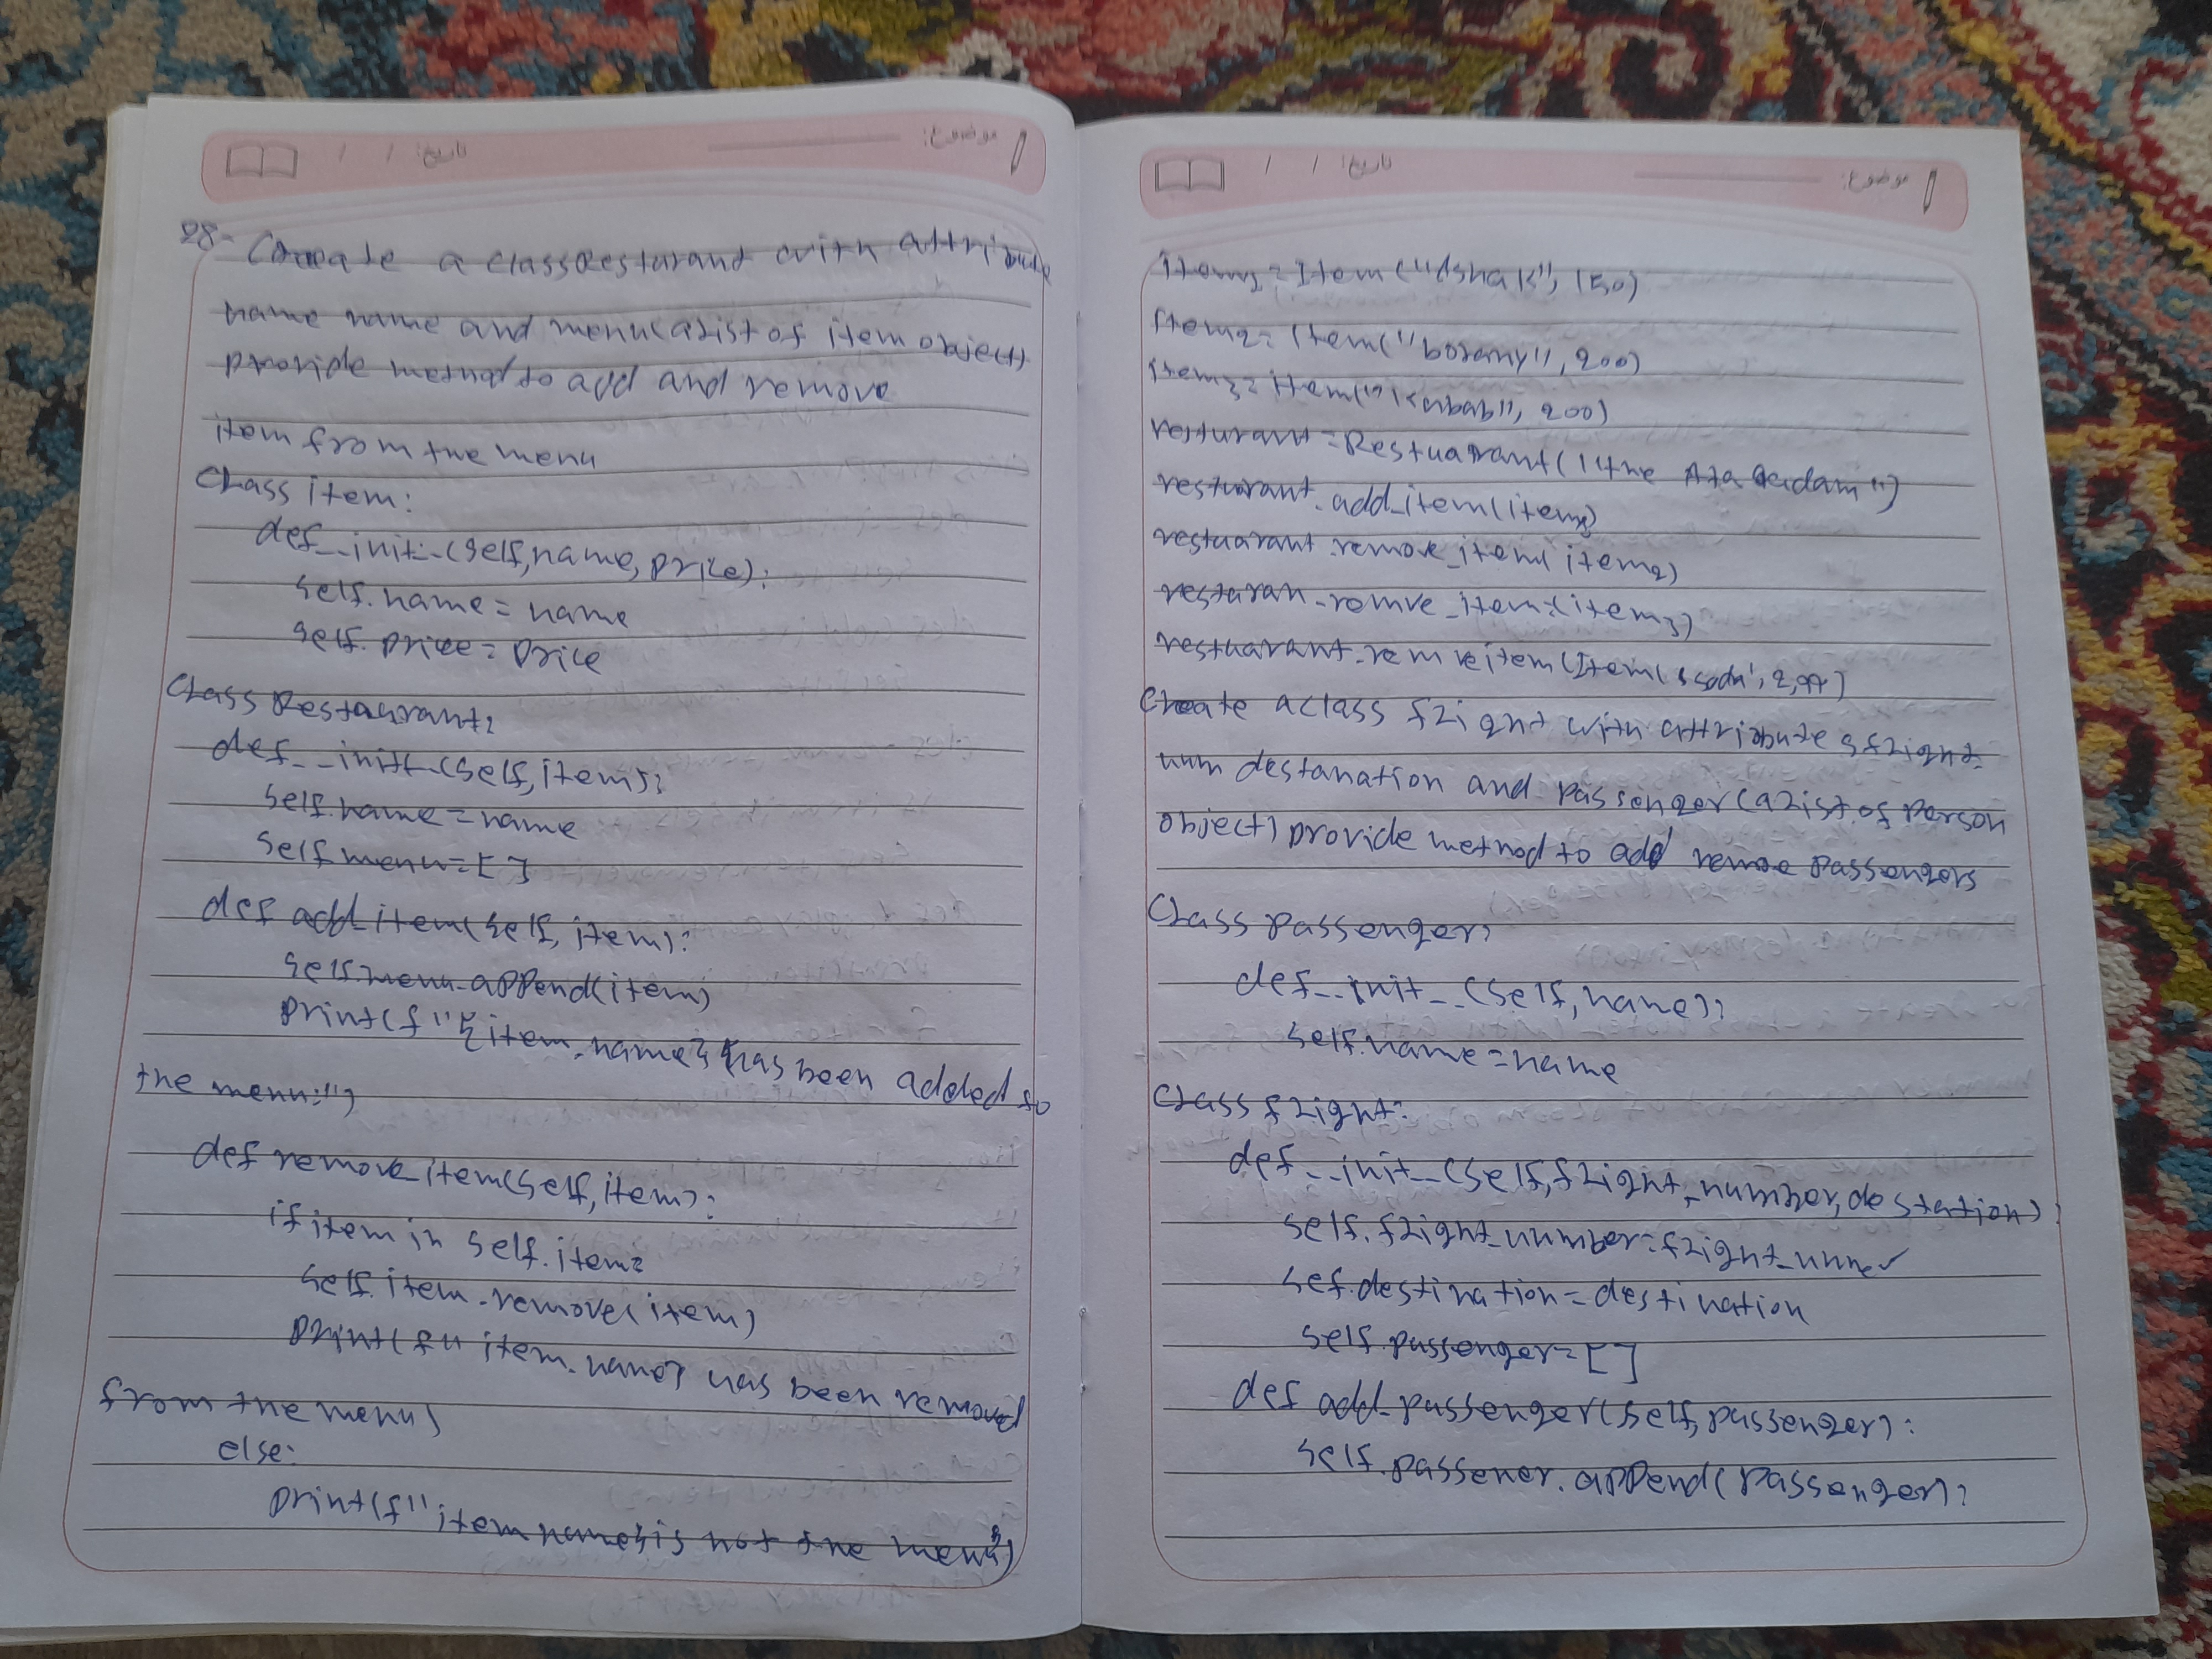 28- Create a class Resturant with attribute
name name and menu (a list of item object)
provide method to add and remove
item from the menu
class item:
def _init_(self, name, price):
self.name = name
self.price = price
class Restaurant:
def _init_(self, item):
self.name = name
self.menu = []
def add_item(self, item):
self.menu.append(item)
print(f"{item.name} has been added to
the menu")
def remove_item(self, item):
if item in self.item:
self.item.remove(item)
print(f" item.name} has been removed
from the menu)
else:
print(f" item.name is not the menu)
item1 = Item("ishak", 150)
item2 = Item("borany", 200)
item3 = item("kabab", 200)
resturant = Restuarant("the
resturant.add_item(item1)
restuarant.remove_item(item2)
resturan.remove_item(item3)
restuarant.remitem(Item(
Create a class flight with attributes, flight
num destanation and passenger (a list of person
object) provide method to add remove passengers
class passenger:
def _init_(self, name):
self.name = name
class flight:
def _init_(self, flight_number, destation):
self.flight_number = flight_numer
sef.destination = destination
self.passenger = []
def add_passenger(self, passenger):
self.passener.append(passenger):